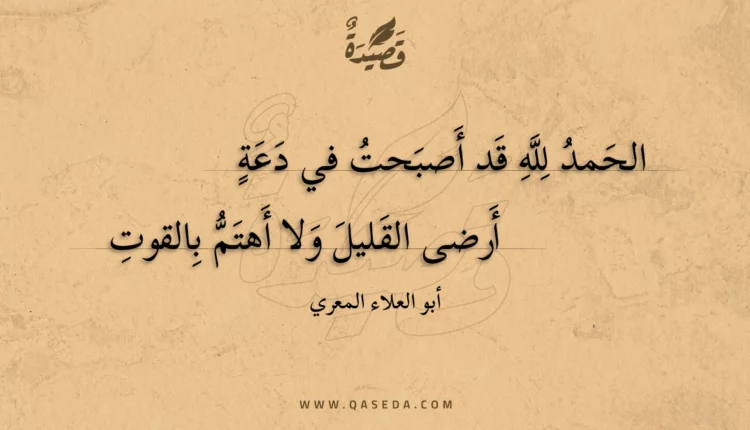 قَصِيْدَةٌ
الحَمدُ لِلَّهِ قَد أَصبَحتُ في دَعَةٍ
أَرضى القَليلَ وَلا أَهتَمُّ بِالقوتِ
أبو العلاء المعري
WWW.QASEDA.COM